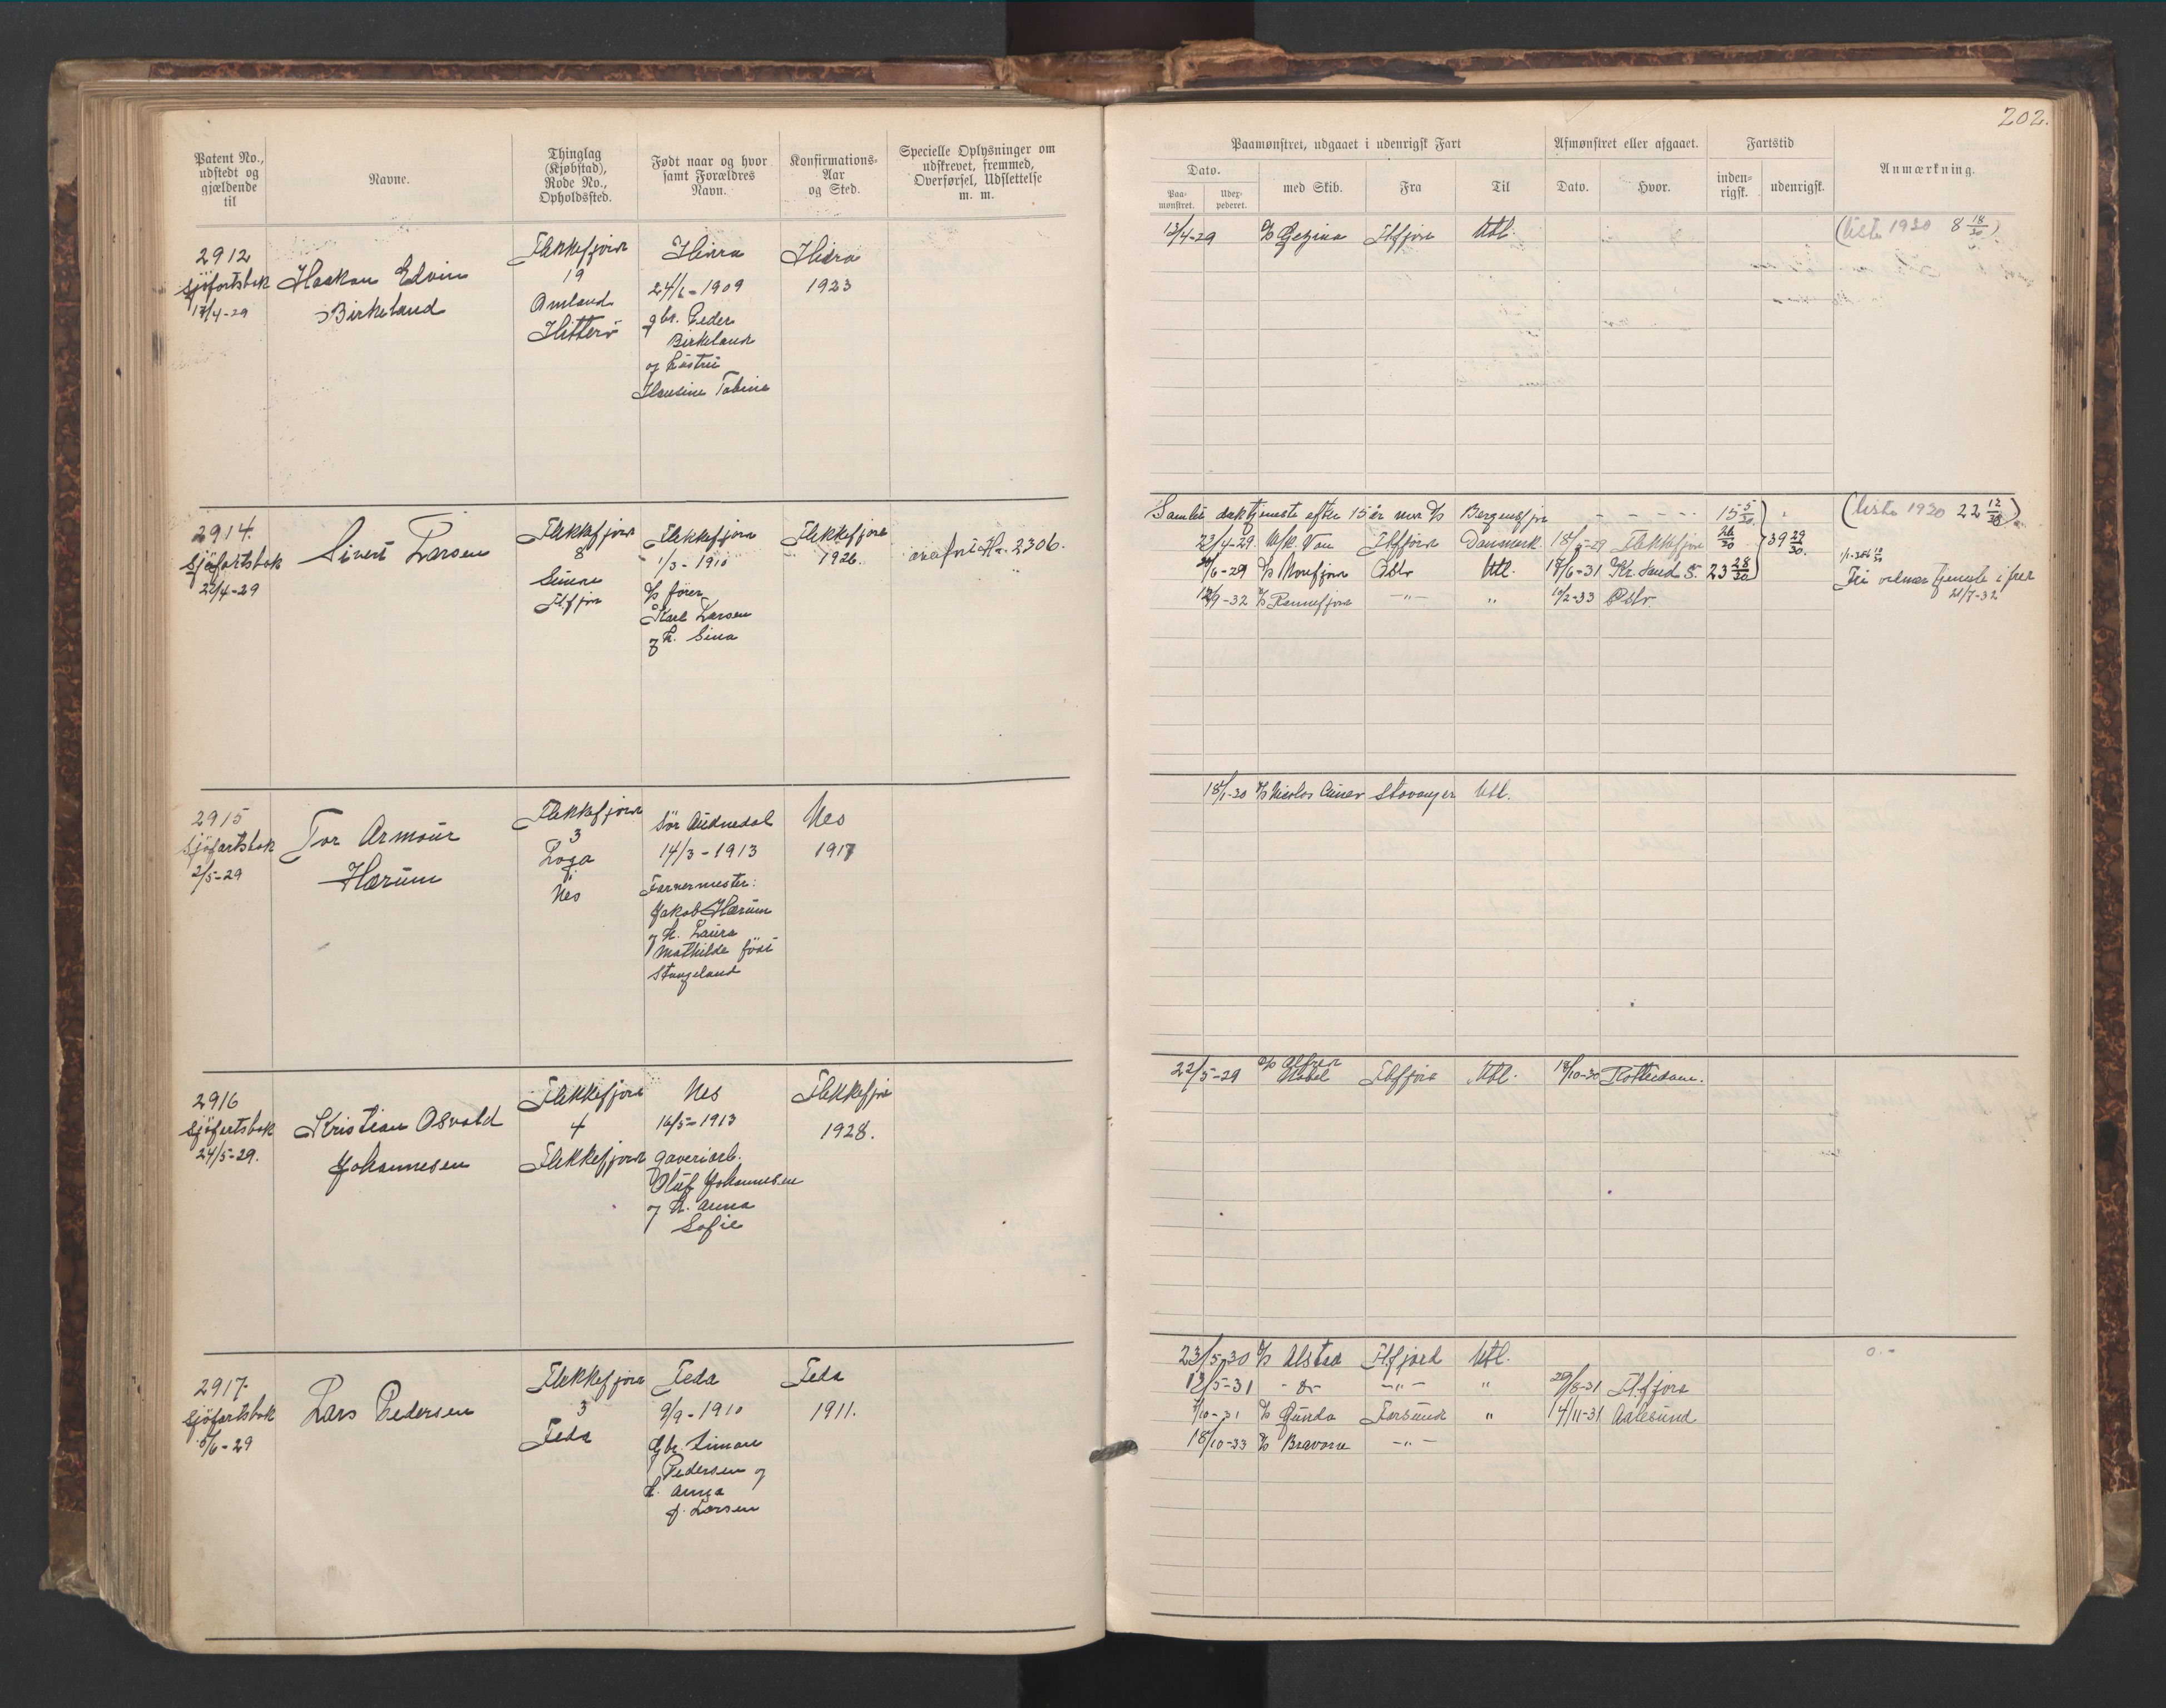 202.
Patent No., udstedt og gjældende til
Navne.
Thinglag (Kjøbstad), Rode No., Opholdssted.
Født naar og hvor samt Forældres Navn.
Konfirmations-Aar og Sted.
Specielle Oplysninger om udskrevet, fremmed, Overførsel, Udslettelse m. m.
Paamønstret, udgaaet i udenrigsk Fart
Dato.
Paa-mønstret.
Uder-pederet.
med Skib.
Fra
Til
Afmønstret eller afgaaet.
Dato.
Hvor.
Fartstid
inden-rigsk.
udenrigsk.
Anmærkning.
2912
Sjöfartsbok
17/4-29
Haakon Edvin
Birkeland
Flekkefjord
19
Omland
Hitterö
Hidra
24/6-1909
gbr. Peder
Birkeland
og hustru
Hansine Tobine
Hidra
1923
13/4-29 D/S Gezina Flfjord Utl.
(liste 1930 8 18/30)
2914.
Sjöfartsbok
22/4-29
Sivert Larsen
Flekkefjord
8
Sunde
Flfjor
Flekkefjord
1/3-1910
D/S förer
Karl Larsen
og h. Sina
Flekkefjord
1926.
2306.
Samlet dækstjeneste efter 15 år med D/S Bergensfjor - - - - - 15 5/30
23/4-29 M/K. Von Flfjord Danmark 18/5-29 Flekkefjor 26/30 39 29/30.
/6-29 D/S Oslo Utl. 18/6-31 Kr.sand S. 23 28/30
/9-32 D/S Ranefjord -"- " 10/2-33 Oslo.
(liste 1930 22 12/30)
Fri ordinær tjeneste i fred
21/7-32
2915
Sjöfartsbok
2/5-29
Tor Armour
Hærum
Flekkefjord
3
Loga
Nes
Sör Audnedal
14/3-1913
Farvermester:
Jakob Hærum
og h. Laura
Mathilde född
Stangeland
Nes
1917
18/1-30 D/S Nicolas Stavanger Utl.
2916
Sjöfartsbok
24/5-29.
Kristian Osvald
Johannesen
Flekkefjord
4
Flekkefjord
Nes
16/5-1913
garveriarb.
Oluf Johannesen
og h. Anna
Sofie
Flekkefjor
1928.
22/5-29 D/S Alfred Nobel Flfjord Utl. 18/10-30 Rotterdam.
2917.
Sjöfartsbok
5/6-29
Lars Pedersen
Flekkefjord
3
Feda
Feda
9/9-1910
Gbr. Simon
Pedersen og
h. Anna
f. Larsen
Feda
1911.
23/5-30 D/S Alstad Flfjord Utl.
12/5-31 - do - -"- " 29/8-31 Flfjord
7/10-31 D/S Gunda Farsund " 14/11-31 Aalesund
18/10-33 D/S Bravore -"-